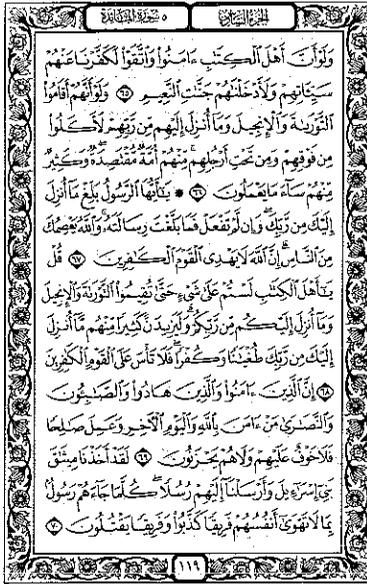 الجزء السادس
٥ سورة المائدة
وَلَوْ أَنَّ أَهْلَ الْكِتَٰبِ ءَامَنُوا وَاتَّقَوْا لَكَفَّرْنَا عَنْهُمْ
سَيِّـَٔاتِهِمْ وَلَأَدْخَلْنَٰهُمْ جَنَّٰتِ النَّعِيمِ ٦٥ وَلَوْ أَنَّهُمْ أَقَامُوا
التَّوْرَىٰةَ وَالْإِنجِيلَ وَمَا أُنزِلَ إِلَيْهِم مِّن رَّبِّهِمْ لَأَكَلُوا
مِن فَوْقِهِمْ وَمِن تَحْتِ أَرْجُلِهِم مِّنْهُمْ أُمَّةٌ مُّقْتَصِدَةٌ وَكَثِيرٌ
مِّنْهُمْ سَاءَ مَا يَعْمَلُونَ ٦٦ ۞ يَٰأَيُّهَا الرَّسُولُ بَلِّغْ مَا أُنزِلَ
إِلَيْكَ مِن رَّبِّكَ وَإِن لَّمْ تَفْعَلْ فَمَا بَلَّغْتَ رِسَالَتَهُ وَاللَّهُ يَعْصِمُكَ
مِنَ النَّاسِ إِنَّ اللَّهَ لَا يَهْدِي الْقَوْمَ الْكَٰفِرِينَ ٦٧ قُلْ
يَٰأَهْلَ الْكِتَٰبِ لَسْتُمْ عَلَىٰ شَيْءٍ حَتَّىٰ تُقِيمُوا التَّوْرَىٰةَ وَالْإِنجِيلَ
وَمَا أُنزِلَ إِلَيْكُم مِّن رَّبِّكُمْ وَلَيَزِيدَنَّ كَثِيرًا مِّنْهُم مَّا أُنزِلَ
إِلَيْكَ مِن رَّبِّكَ طُغْيَٰنًا وَكُفْرًا فَلَا تَأْسَ عَلَى الْقَوْمِ الْكَٰفِرِينَ
٦٨ إِنَّ الَّذِينَ ءَامَنُوا وَالَّذِينَ هَادُوا وَالصَّٰبِـُٔونَ
وَالنَّصَٰرَىٰ مَنْ ءَامَنَ بِاللَّهِ وَالْيَوْمِ الْءَاخِرِ وَعَمِلَ صَٰلِحًا
فَلَا خَوْفٌ عَلَيْهِمْ وَلَا هُمْ يَحْزَنُونَ ٦٩ لَقَدْ أَخَذْنَا مِيثَٰقَ
بَنِي إِسْرَٰءِيلَ وَأَرْسَلْنَا إِلَيْهِمْ رُسُلًا كُلَّمَا جَاءَهُمْ رَسُولٌ
بِمَا لَا تَهْوَىٰ أَنفُسُهُمْ فَرِيقًا كَذَّبُوا وَفَرِيقًا يَقْتُلُونَ ٧٠
١١٩